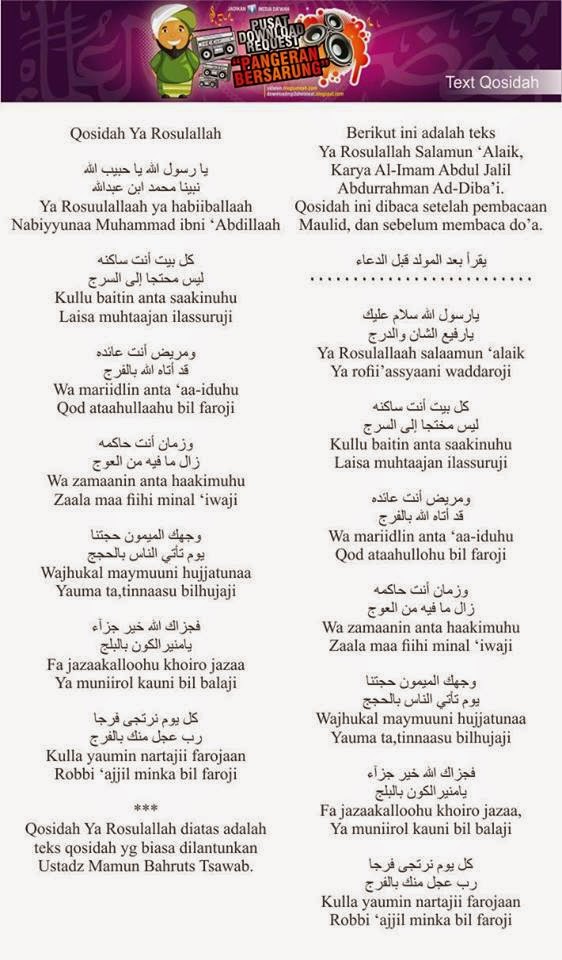 JADIKAN MEDIA DA'WAH
PUSAT
DOWNLOAD
REQUEST
"PANGERAN
BERSARUNG"
Text Qosidah
Qosidah Ya Rosulallah
يا رسول الله يا حبيب الله
نبينا محمد ابن عبدالله
Ya Rosuulallaah ya habiiballaah
Nabiyyunaa Muhammad ibni ‘Abdillaah
كل بيت أنت ساكنه
ليس محتجا إلى السرج
Kullu baitin anta saakinuhu
Laisa muhtaajan ilassuruji
ومريض أنت عائده
قد أتاه الله بالفرج
Wa mariidlin anta ‘aa-iduhu
Qod ataahullaahu bil faroji
وزمان أنت حاكمه
زال ما فيه من العوج
Wa zamaanin anta haakimuhu
Zaala maa fiihi minal ‘iwaji
وجهك الميمون حجتنا
يوم تأتي الناس بالحجج
Wajhukal maymuuni hujjatunaa
Yauma ta,tinnaasu bilhujaji
فجزاك الله خير جزآء
يامنيرالكون بالبلج
Fa jazaakalloohu khoiro jazaa
Ya muniirol kauni bil balaji
كل يوم نرتجى فرجا
رب عجل منك بالفرج
Kulla yaumin nartajii farojaan
Robbi ‘ajjil minka bil faroji
***
Qosidah Ya Rosulallah diatas adalah
teks qosidah yg biasa dilantunkan
Ustadz Mamun Bahruts Tsawab.
Berikut ini adalah teks
Ya Rosulallah Salamun ‘Alaik,
Karya Al-Imam Abdul Jalil
Abdurrahman Ad-Diba’i.
Qosidah ini dibaca setelah pembacaan
Maulid, dan sebelum membaca do’a.
يقرأ بعد المولد قبل الدعاء
. . . . . . . . . . . . . . . . . . . . . . . . . .
يارسول الله سلام عليك
يارفيع الشان والدرج
Ya Rosulallaah salaamun ‘alaik
Ya rofii’assyaani waddaroji
كل بيت أنت ساكنه
ليس مختجا إلى السرج
Kullu baitin anta saakinuhu
Laisa muhtaajan ilassuruji
ومريض أنت عائده
قد أتاه الله بالفرج
Wa mariidlin anta ‘aa-iduhu
Qod ataahullohu bil faroji
وزمان أنت حاكمه
زال ما فيه من العوج
Wa zamaanin anta haakimuhu
Zaala maa fiihi minal ‘iwaji
وجهك الميمون حجتنا
يوم تأتي الناس بالحجج
Wajhukal maymuuni hujjatunaa
Yauma ta,tinnaasu bilhujaji
فجزاك الله خير جزآء
يامنيرالكون بالبلج
Fa jazaakalloohu khoiro jazaa,
Ya muniirol kauni bil balaji
كل يوم نرتجى فرجا
رب عجل منك بالفرج
Kulla yaumin nartajii farojaan
Robbi ‘ajjil minka bil faroji